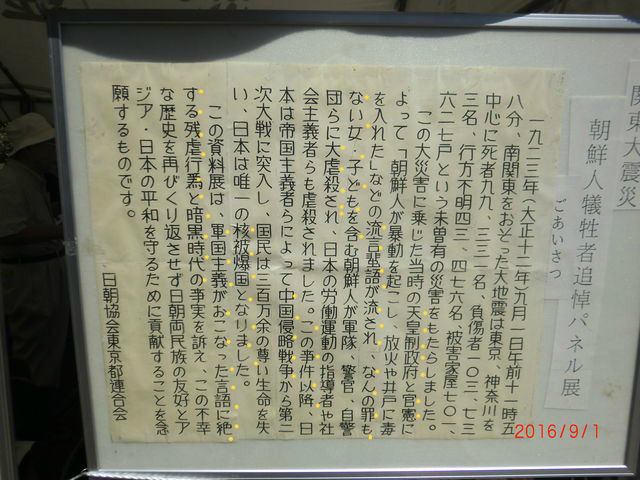 関東大震災
朝鮮人犠牲者追悼パネル展
ごあいさつ
一九二三年（大正十二年）九月一日午前十一時五
八分、南関東をおそった大地震は東京、神奈川を
中心に死者九九、三三一名、負傷者一〇三、七三
三名、行方不明四三、四七六名、被害家屋七〇一、
六二七戸という未曽有の災害をもたらしました。
この大災害に乗じた当時の天皇制政府と官憲に
よって「朝鮮人が暴動を起こし、放火や井戸に毒
を入れた」などの流言蜚語が流され、なんの罪も
ない女・子どもを含む朝鮮人が軍隊、警官、自警
団らに大虐殺され、日本の労働運動の指導者や社
会主義者らも虐殺されました。この事件以降、日
本は帝国主義者らによって中国侵略戦争から第二
次大戦に突入し、国民は三百万余の尊い生命を失
い、日本は唯一の核被爆国となりました。
この資料展は、軍国主義がおこなった言語に絶
する残虐行為と暗黒時代の事実を訴え、この不幸
な歴史を再びくり返させず日朝両民族の友好とア
ジア・日本の平和を守るために貢献することを念
願するものです。
日朝協会東京都連合会
2016/9/1